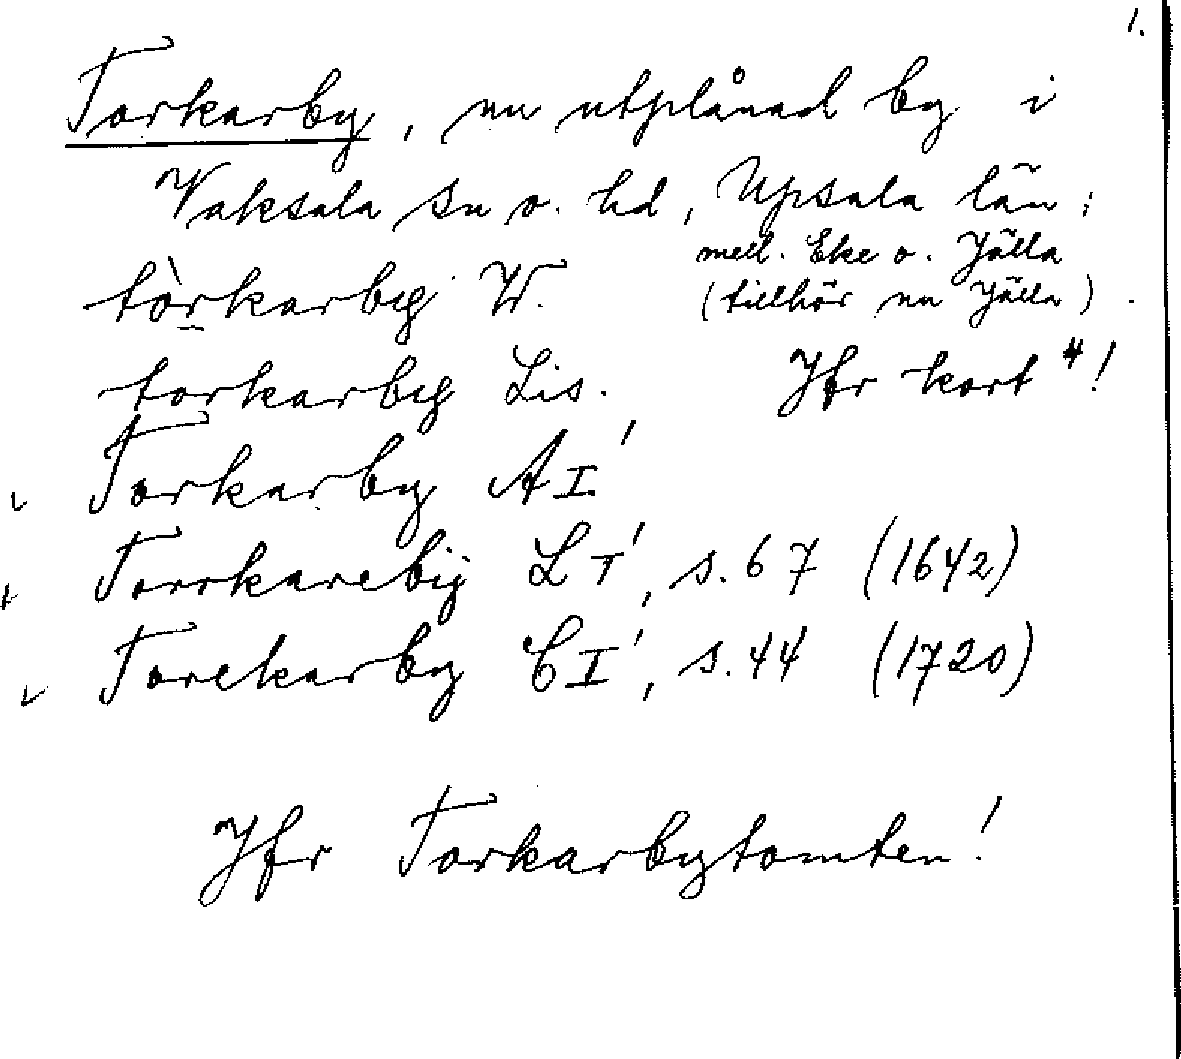 1.
Torkarby, nu utplånad by i
Vaksala sn o. hd, Upsala län;
mell. Eke o. Jälla
(tillhör nu Jälla).
tòrkarby W.
torkarby Lis.
Jfr kort 4!
Torkarby AI'
Torrkarebÿ LT', s. 67 (1642)
Torckarby CI', s. 44 (1720)
Jfr Torkarbytomten!